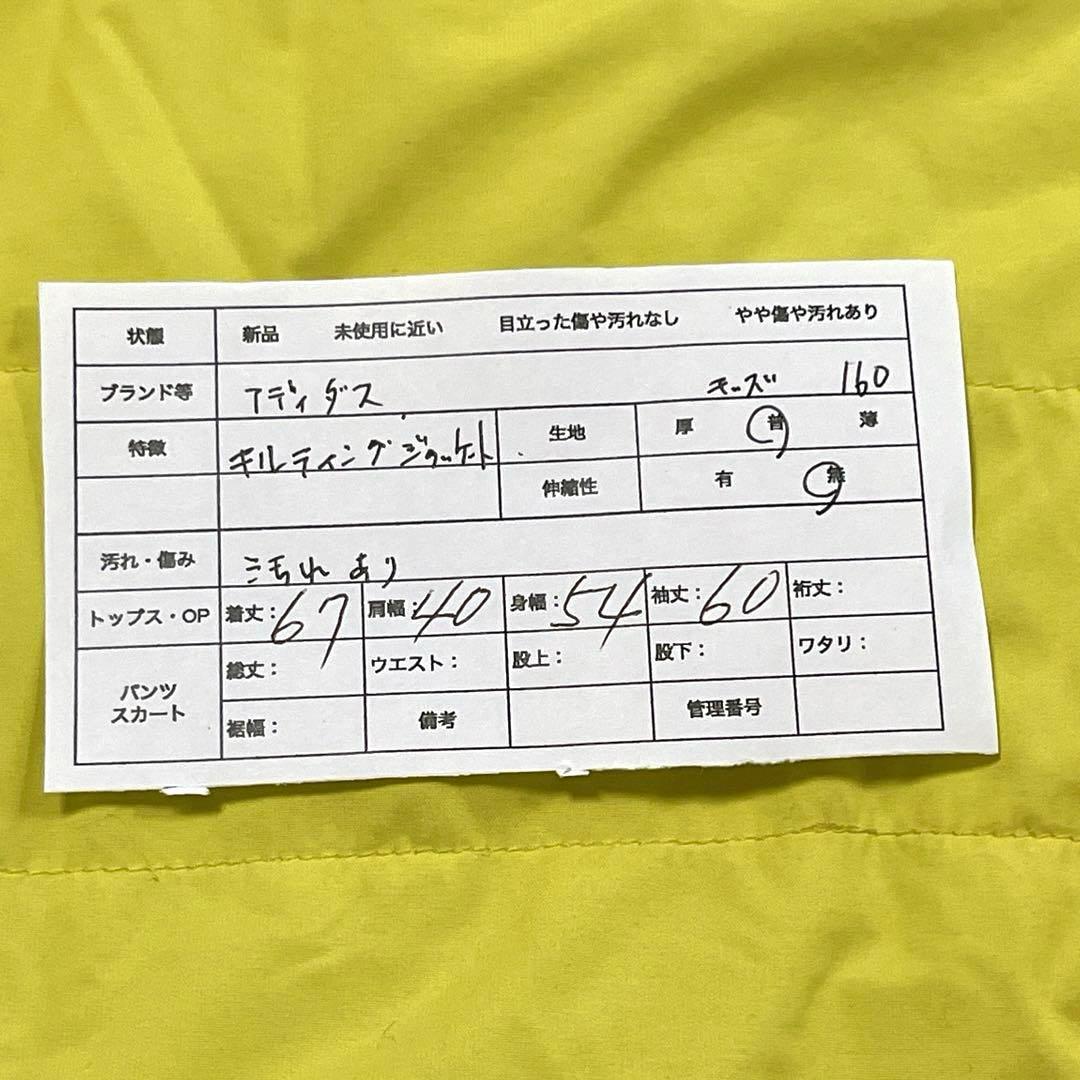 状態 新品 未使用に近い 目立った傷や汚れなし やや傷や汚れあり
ブランド等 アディダス キッズ 160
特徴 キルティングジャケット 生地 厚 普 薄
伸縮性 有 無
汚れ・傷み 汚れあり
トップス・OP 着丈:67 肩幅:40 身幅:54 袖丈:60 裄丈:
パンツ スカート 総丈: ウエスト: 股上: 股下: ワタリ:
裾幅: 備考 管理番号